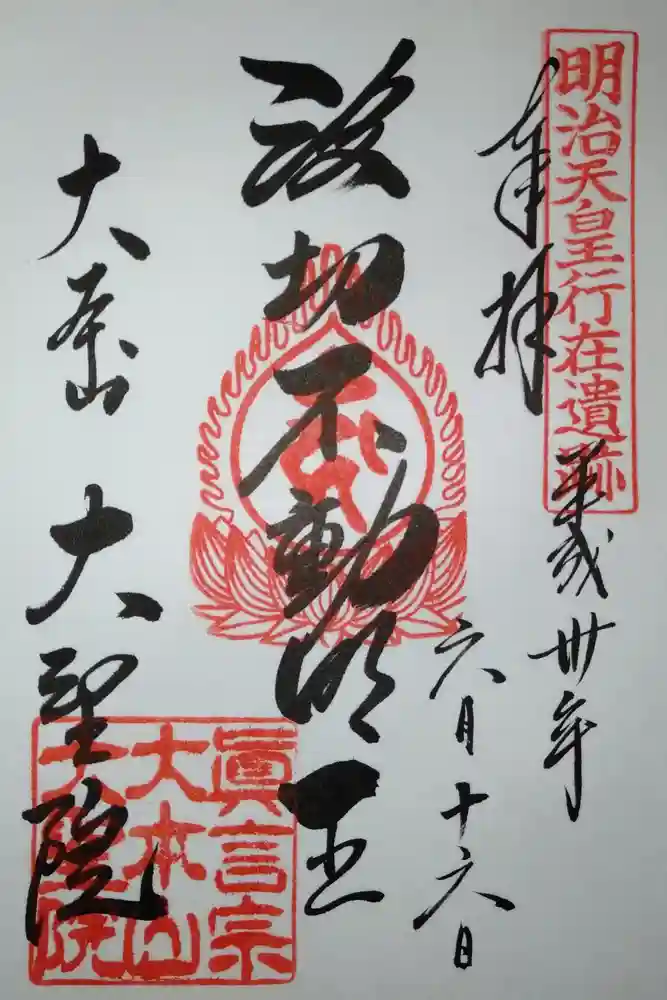 明治天皇行在遺跡
奉拝
平成卅年
六月十六日
波切不動明王
大本山 大聖院
眞言宗
大本山
大聖院